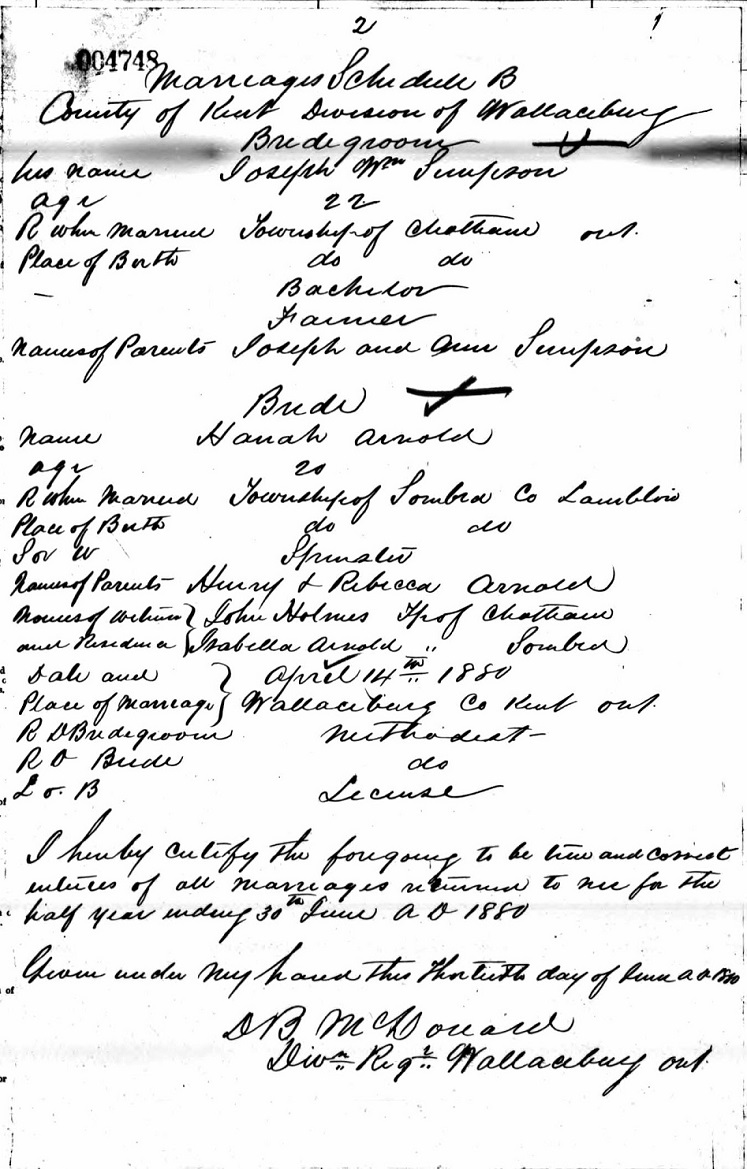 2 1
004748
Marriages Schedule B
County of Kent Division of Wallaceburg
Bridegroom
his name Joseph Wm Simpson
age 22
R when Married Township of Chatham ont.
Place of Birth do do
— Bachelor
Farmer
Names of Parents Joseph and Ann Simpson
Bride
Name Hanah Arnold
age 20
R when Married Township of Sombra Co Lambton
Place of Birth do do
S or W Spinster
Names of Parents Henry & Rebecca Arnold
Names of witness } John Holmes Tp of Chatham
and Residence } Isabella Arnold " Sombra
Date and } April 14th 1880
Place of Marriage } Wallaceburg Co Kent ont.
R D Bridegroom Methodist
R D Bride do
L or B License
I hereby certify the foregoing to be true and correct
entries of all marriages returned to me for the
half year ending 30th June A D 1880
Given under my hand this Thirtieth day of June A D 1880
D B McDonald
Divn Regr Wallaceburg ont